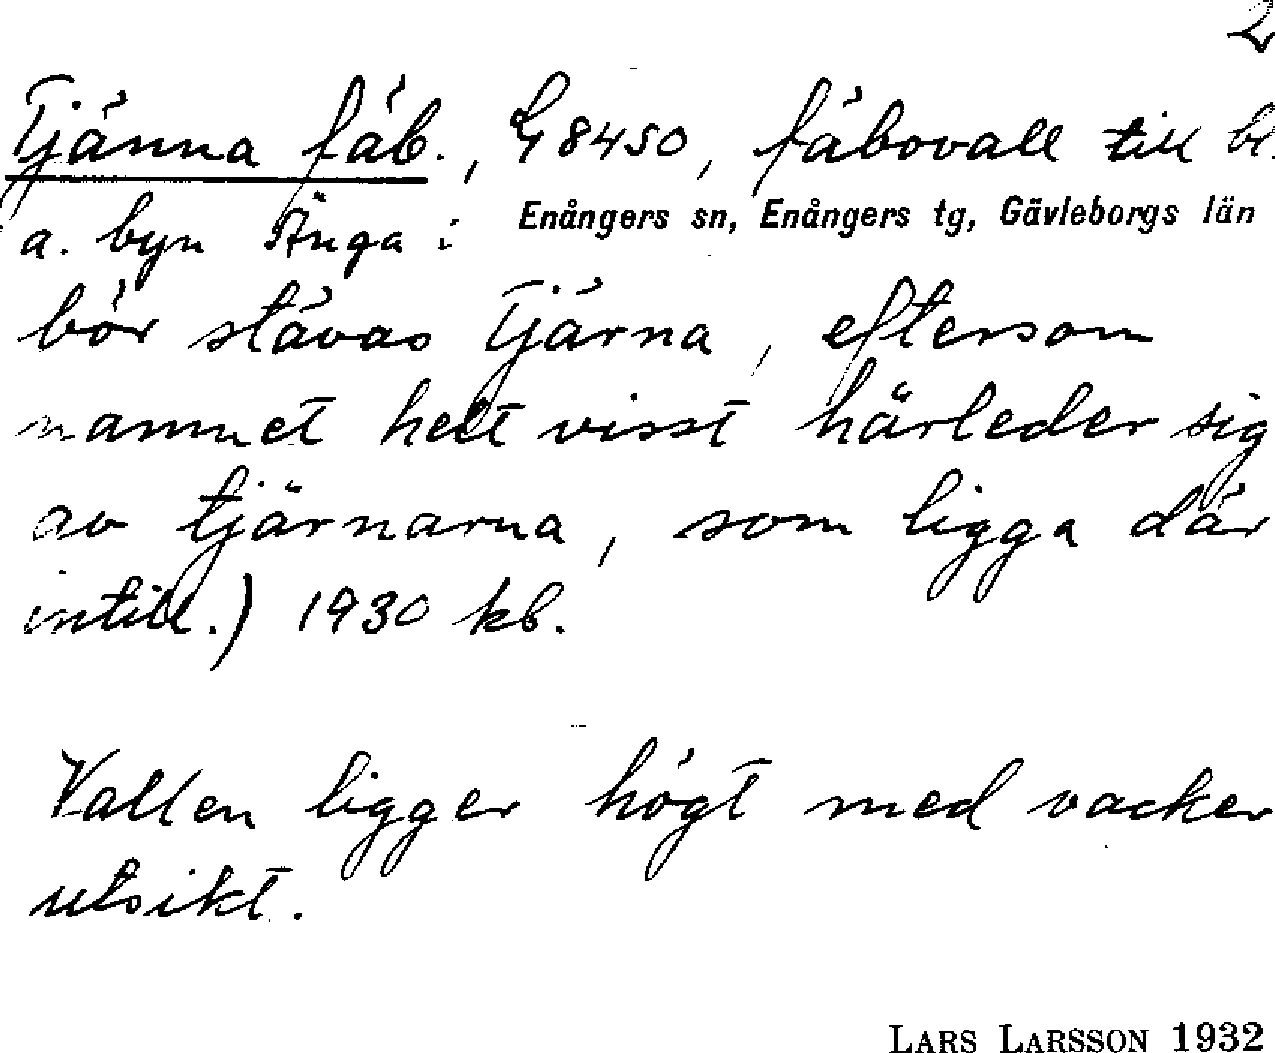 2
Tjänna fäb., G 8450, fäbovall till bl.
a. byn Änga i Enångers sn, Enångers tg, Gävleborgs län
bör stavas Tjärna, eftersom
namnet helt visst härleder sig
av tjärnarna, som ligga där
intill.) 1930 kb.
Vallen ligger högt med vacker
utsikt.
LARS LARSSON 1932